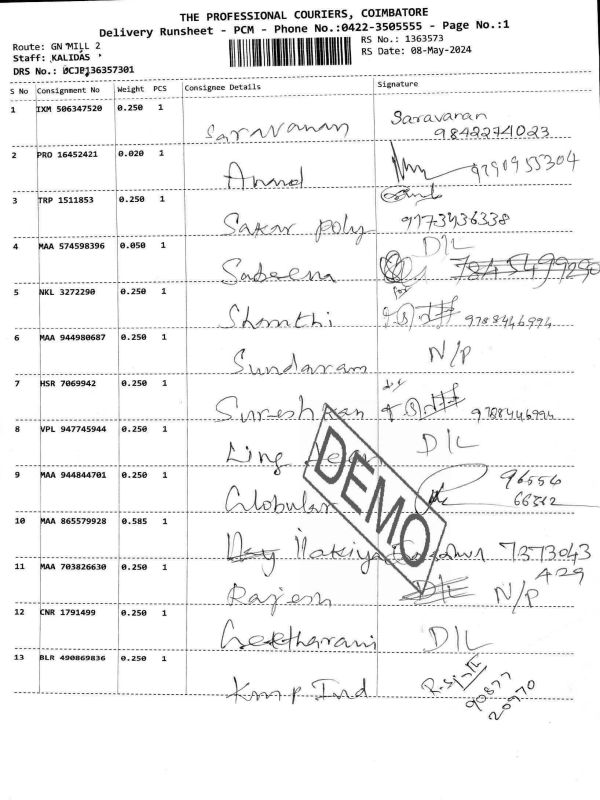 THE PROFESSIONAL COURIERS, COIMBATORE
Delivery Runsheet - PCM - Phone No.:0422-3505555 - Page No.:1
Route: GN MILL 2
RS No.: 1363573
Staff: KALIDAS
RS Date: 08-May-2024
DRS No.: DCJP136357301
S No Consignment No Weight PCS Consignee Details Signature
1 IXM 506347520 0.250 1
Saravanan Saravanan
9842274023
2 PRO 16452421 0.020 1
Anand 9790955304
3 TRP 1511853 0.250 1
Sakar poly 9173436338
4 MAA 574598396 0.050 1 D/L
Sabeena
5 NKL 3272290 0.250 1 for
Shanthi 9788446994
6 MAA 944980687 0.250 1
Sundaram N/P
7 HSR 7069942 0.250 1
Sureshkan 9788446994
8 VPL 947745944 0.250 1 D/L
Ling
9 MAA 944844701 0.250 1 96556
Globular 66362
10 MAA 865579928 0.585 1
Ilakiya 7373043
429
11 MAA 703826630 0.250 1
Rajesh D/L N/P
12 CNR 1791499 0.250 1
Geetharani D/L
13 BLR 490869836 0.250 1
Kmp Ind 90877
20970
DEMO